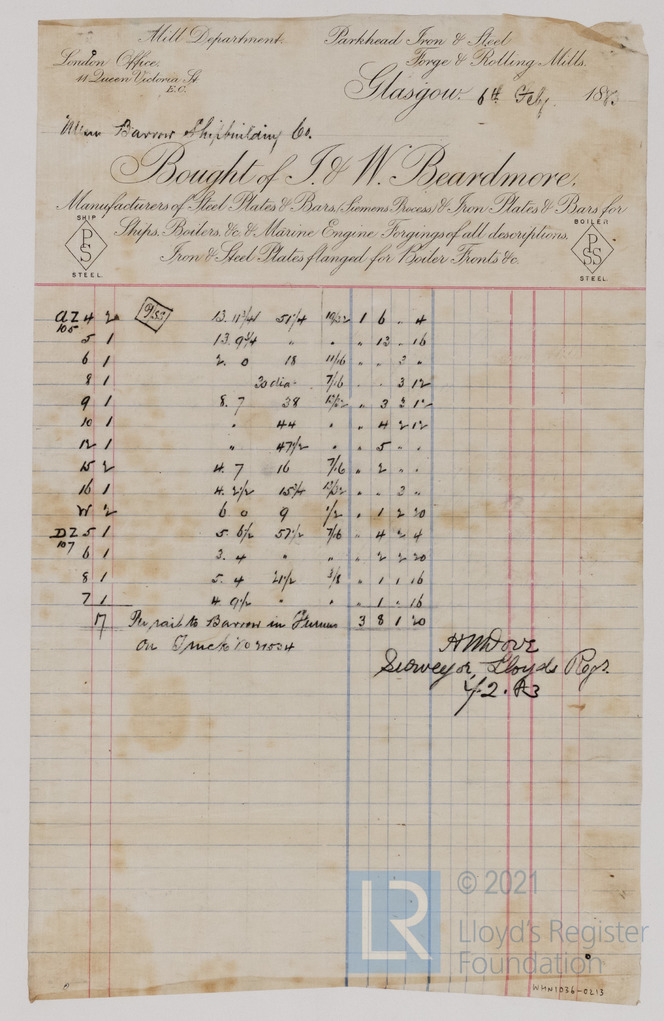 Mill Department. Parkhead Iron & Steel
London Office. Forge & Rolling Mills.
11 Queen Victoria St
E.C.
Glasgow. 6th Feby. 1883
Messrs Barrow Shipbuilding Co.
Bought of J. & W. Beardmore.
Manufacturers of Steel Plates & Bars, (Siemens Process) & Iron Plates & Bars for
Ships, Boilers, &c. & Marine Engine Forgings of all descriptions.
Iron & Steel Plates flanged for Boiler Fronts &c.
SHIP
PS
STEEL.
BOILER
PSS
STEEL.
AZ 4 2 PSS 13. 11 3/4 51 1/4 1 6 " 4
105
5 1 13 9 3/4 " " " 13 " 16
6 1 2. 0 18 11/16 " " 3 "
8 1 30 dia. 7/16 " " 3 12
9 1 8. 7 38 " 3 3 12
10 1 " 44 " " 4 2 12
12 1 " 47 1/2 " " 5 " "
15 2 4. 7 16 7/16 " 2 " "
16 1 4. 2 1/2 15 3/4 " " 3 "
W 2 6 0 9 1/2 " 1 2 20
DZ 5 1 5 6 1/2 57 1/2 7/16 " 4 2 4
107
6 1 3. 4 " " " 2 2 20
8 1 5. 4 21 1/2 3/8 " 1 1 16
7 1 4 9 1/2 " " " 1 " 16
17 Per rail to Barrow in Furness 3 8 1 20
On Truck No
H M Dove
Surveyor, Lloyds Regr.
7/2. 83
LR
© 2021
Lloyd's Register
Foundation
WHN1036-0213